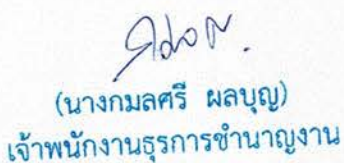 (นางกมลศรี ผลบุญ)
เจ้าพนักงานธุรการชำนาญงาน